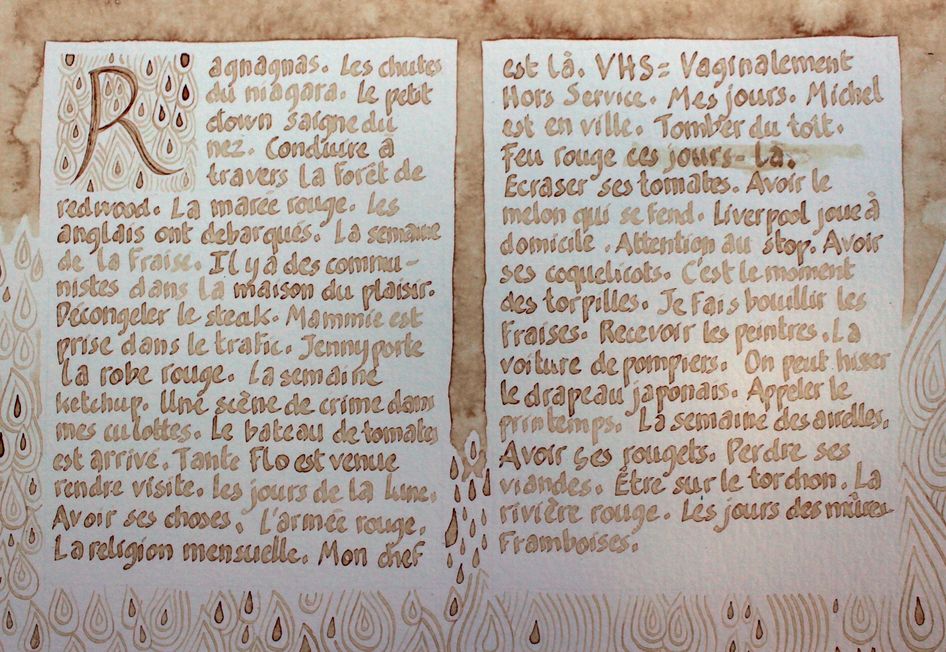 Ragnagnas. Les chutes
du niagara. Le petit
clown saigne du
nez. Conduire à
travers la forêt de
redwood. La marée rouge. Les
anglais ont débarqués. La semaine
de la fraise. Il y a des commu-
nistes dans la maison du plaisir.
Décongeler le steak. Mammie est
prise dans le trafic. Jenny porte
la robe rouge. La semaine
ketchup. Une scène de crime dans
mes culottes. Le bateau de tomates
est arrivé. Tante Flo est venue
rendre visite. Les jours de la lune.
Avoir ses choses. L'armée rouge.
La religion mensuelle. Mon chef
est là. VHS = Vaginalement
Hors Service. Mes jours. Michel
est en ville. Tomber du toit.
Feu rouge ces jours-là.
Ecraser ses tomates. Avoir le
melon qui se fend. Liverpool joue à
domicile. Attention au stop. Avoir
ses coquelicots. C'est le moment
des torpilles. Je fais bouillir les
fraises. Recevoir les peintres. La
voiture de pompiers. On peut hisser
le drapeau japonais. Appeler le
printemps. La semaine des airelles.
Avoir ses rougets. Perdre ses
viandes. Être sur le torchon. La
rivière rouge. Les jours des mûres
framboises.